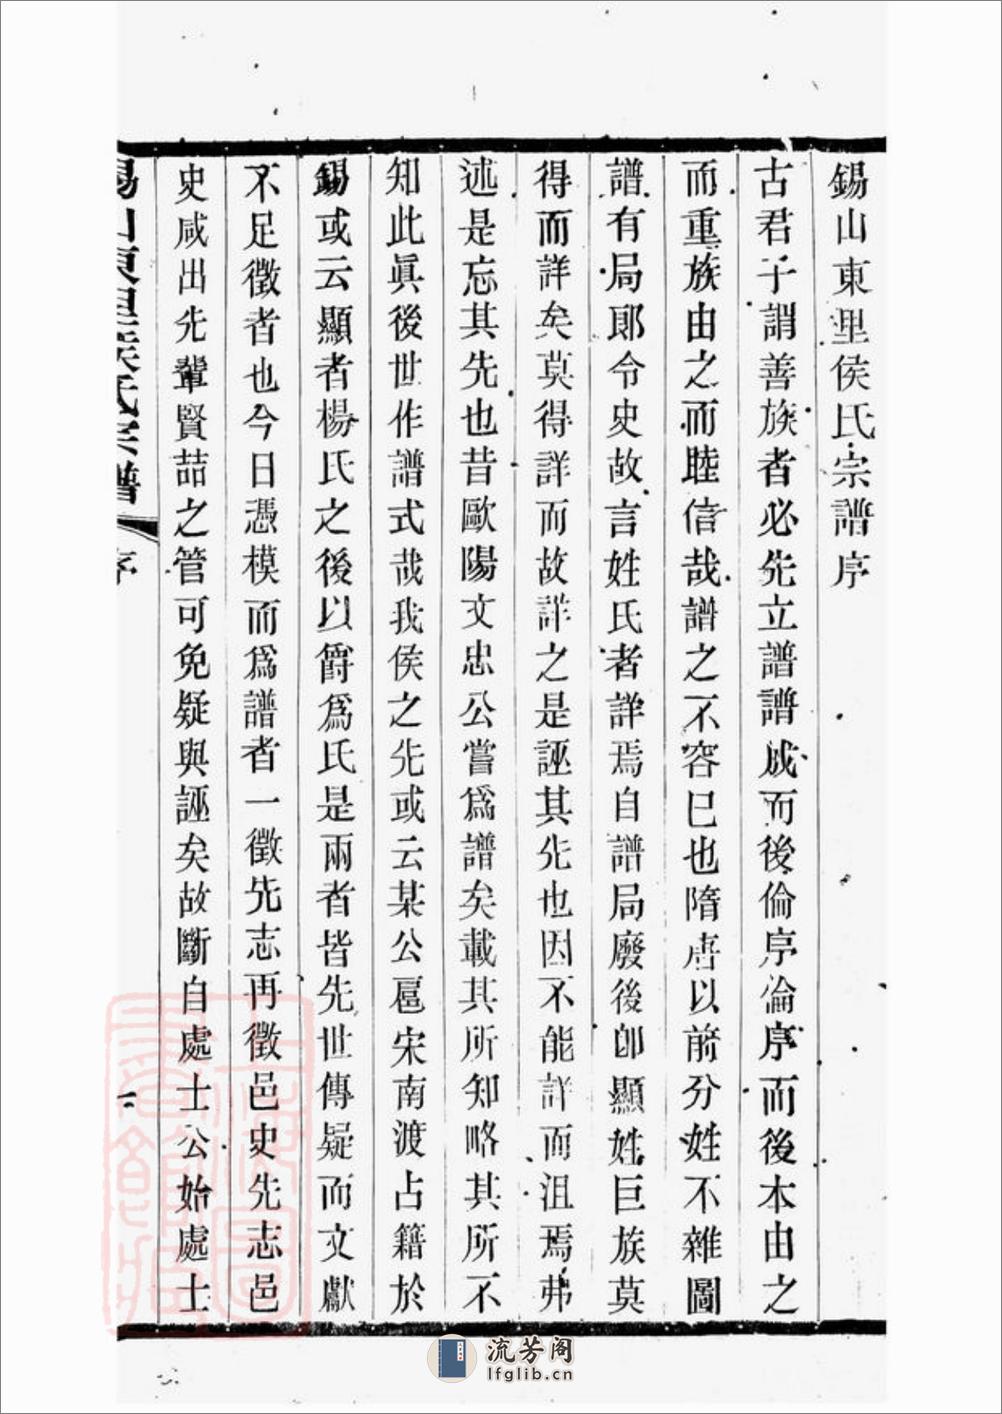 錫山東里侯氏宗譜序
古君子謂善族者必先立譜譜成而後倫序淪序而後本由之
而重族由之而睦信哉譜之不容已也隋唐以前分姓不雜圖
譜有局郎令史故言姓氏者詳焉自譜局廢後卽顯姓巨族莫
得而詳矣莫得詳而故詳之是誣其先也因不能詳而沮焉弗
述是忘其先也昔歐陽文忠公嘗爲譜矣載其所知略其所不
知此眞後世作譜式哉我侯之先或云某公扈宋南渡占籍於
錫或云顯者楊氏之後以爵爲氏是兩者皆先世傳疑而文獻
不足徵者也今日憑模而爲譜者一徵先志再徵邑史先志邑
史咸出先輩賢喆之管可免疑與誣矣故斷自處士公始處士
錫山東里侯氏宗譜
序
一
流芳阁
lfglib.cn